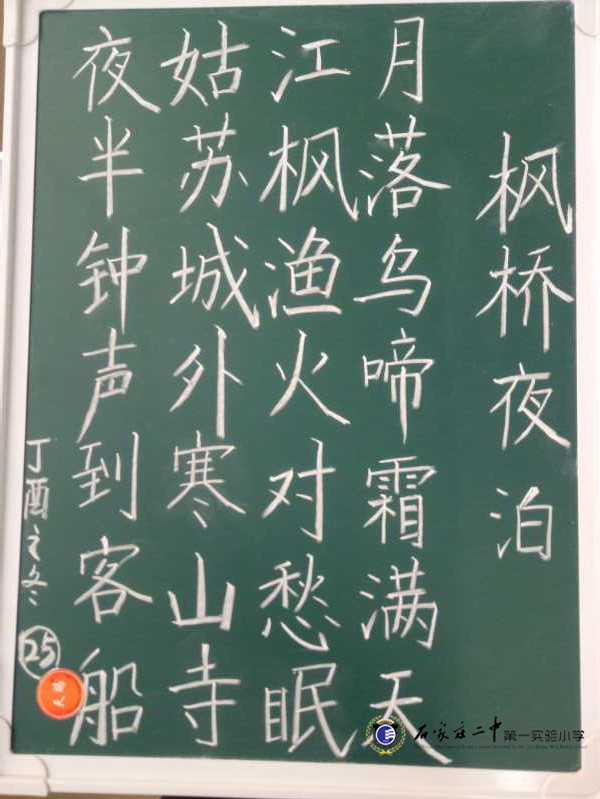 枫桥夜泊
月落乌啼霜满天
江枫渔火对愁眠
姑苏城外寒山寺
夜半钟声到客船
丁酉之冬
25
石家庄二中第一实验小学